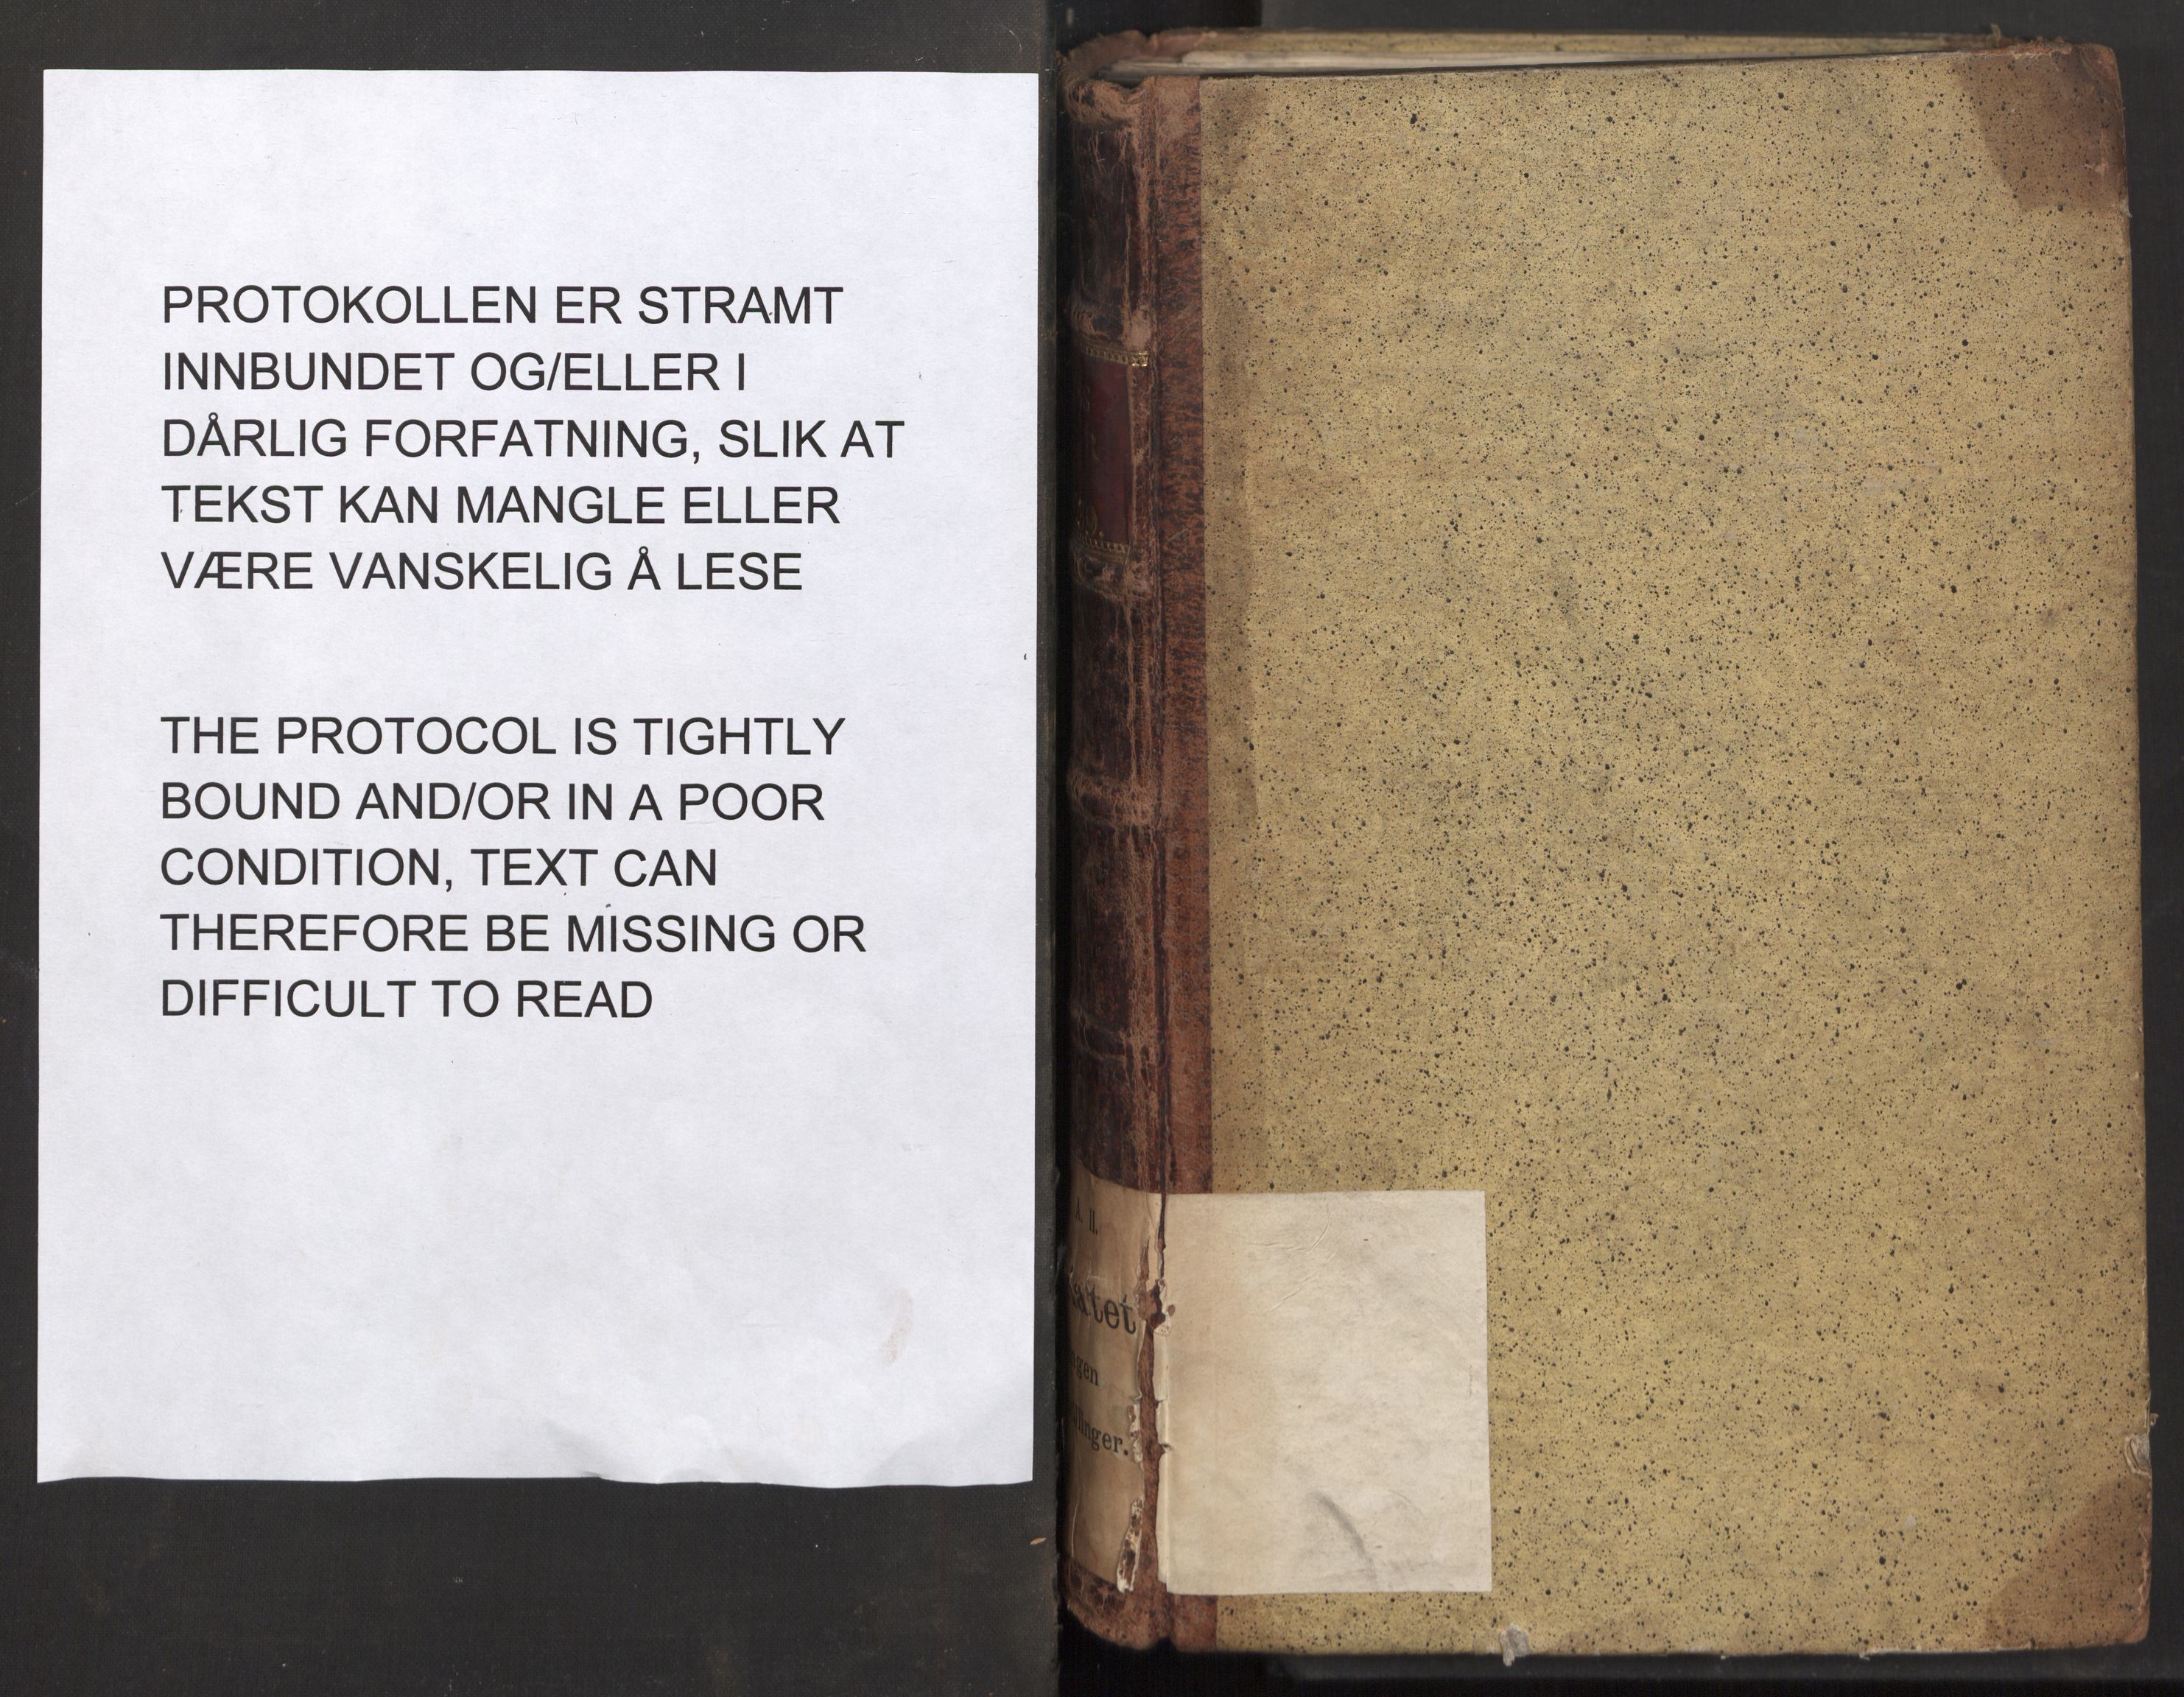 PROTOKOLLEN ER STRAMT
INNBUNDET OG/ELLER I
DÅRLIG FORFATNING, SLIK AT
TEKST KAN MANGLE ELLER
VÆRE VANSKELIG Å LESE
THE PROTOCOL IS TIGHTLY
BOUND AND/OR IN A POOR
CONDITION, TEXT CAN
THEREFORE BE MISSING OR
DIFFICULT TO READ
II.